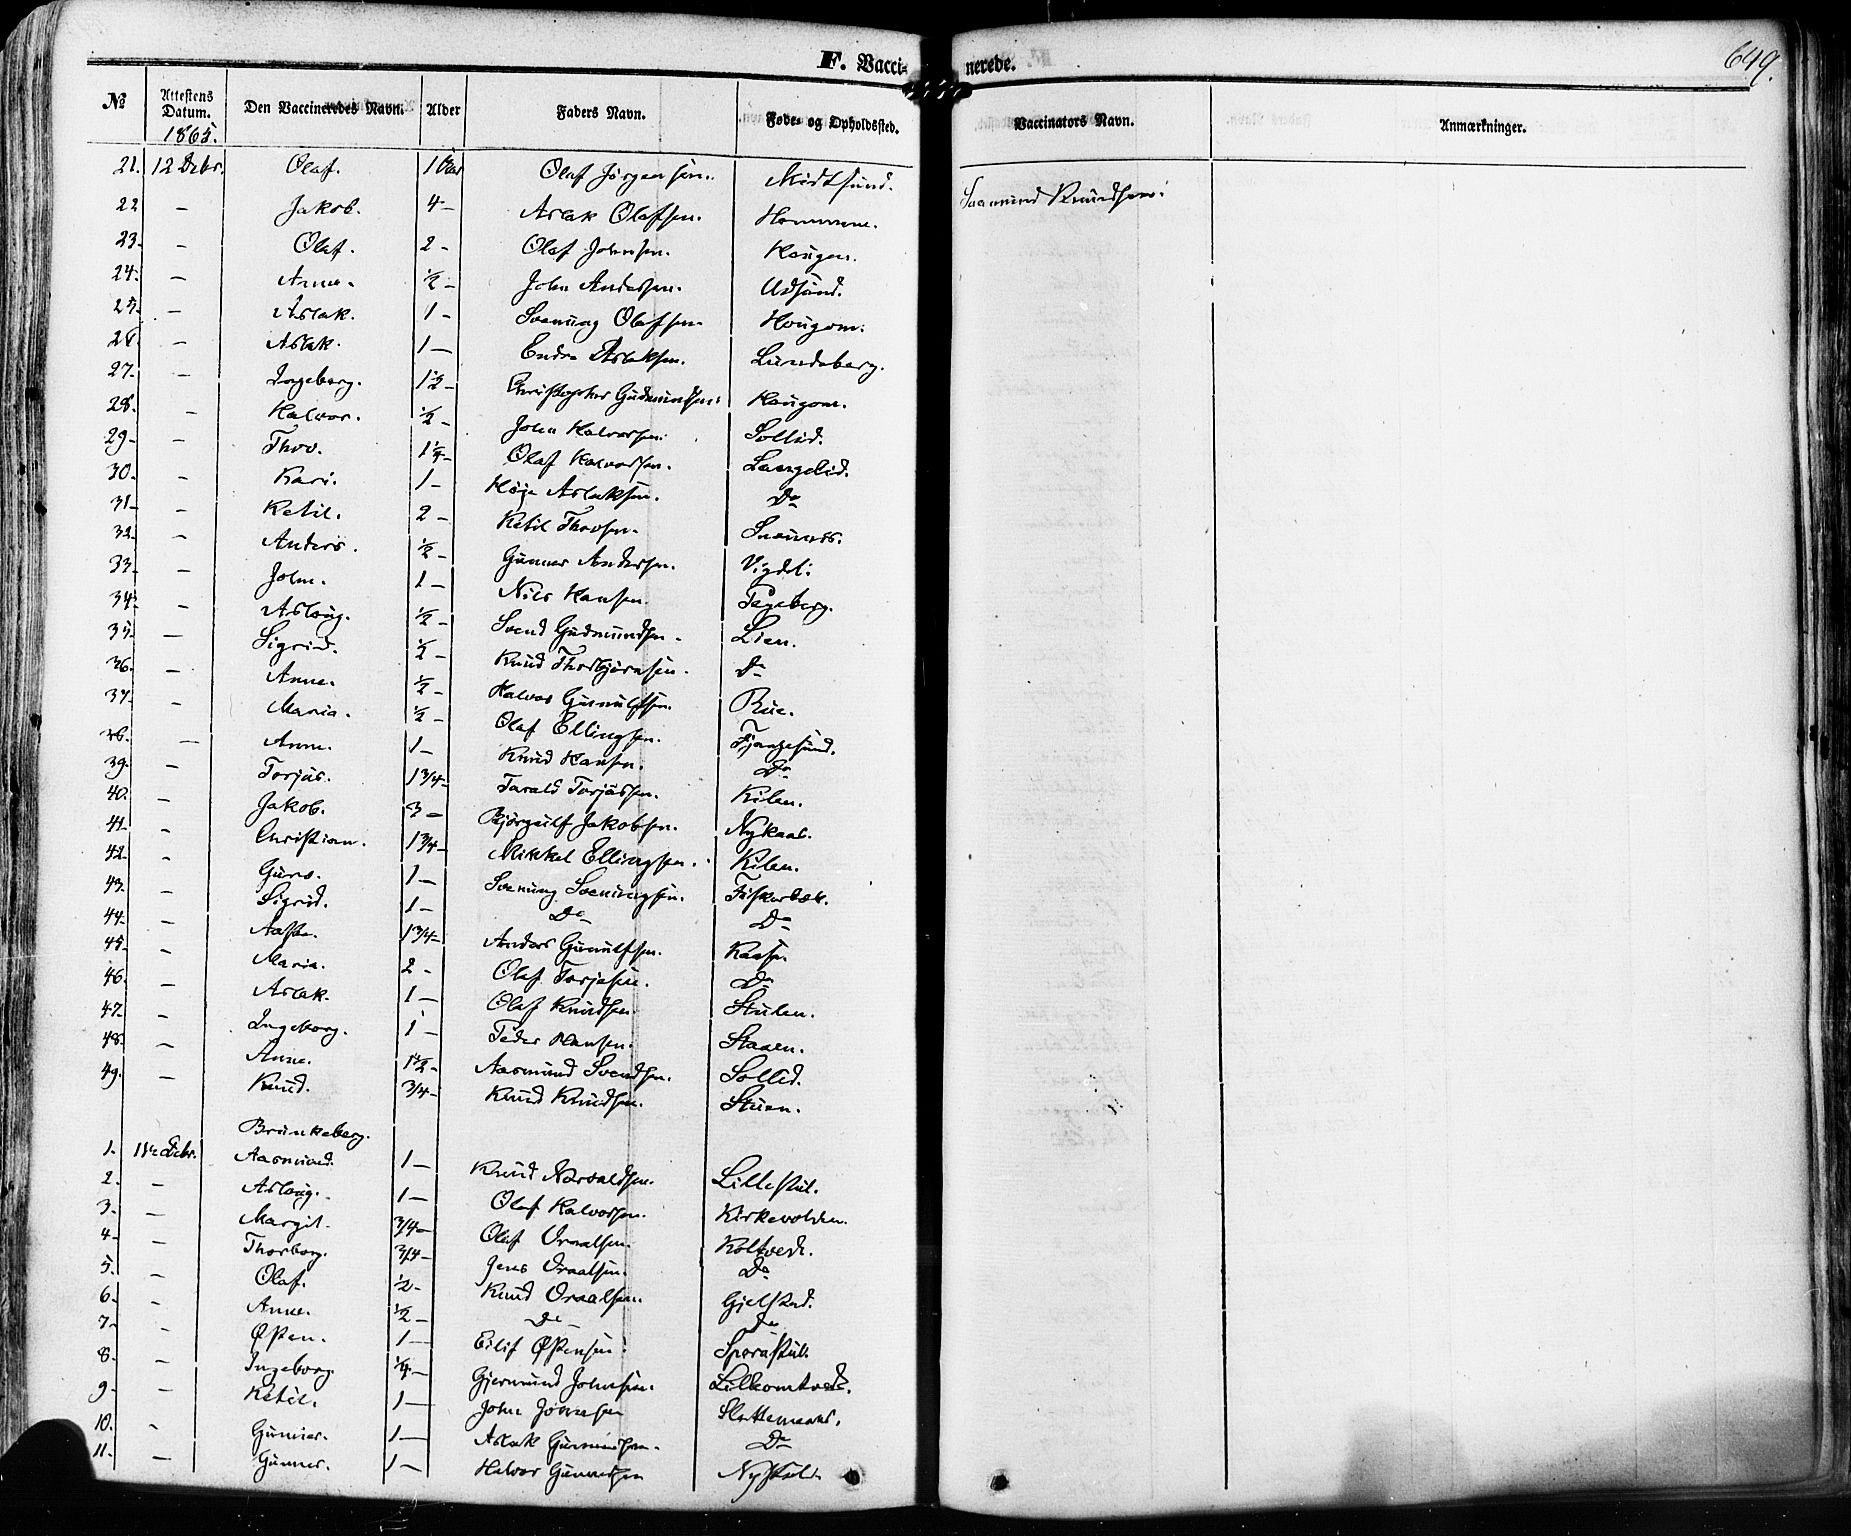 F. Vacci-
nerede.
649.
№ Attestens Datum. Den Vaccineredes Navn. Alder Faders Navn. Føde- og Opholdssted. Vaccinators Navn. Anmærkninger.
1865.
21. 12 Debr. Olaf. 1 Aar Olaf Jørgensen. Midtsund. Saamund Knudsen.
22 — Jakob. 4 — Aslak Olafsen. Homme.
23. — Olaf. 2 - Olaf Johnsen. Haugen.
24. — Anne. ½ - John Andersen. Udsund.
25. — Aslak. 1 - Svenung Olafsen Hougom.
26. — Aslak. 1 — Endre Aslaksen. Lundeberg.
27. — Ingeborg. 1½ - Christopher Gudmundsen. Hougom.
28. — Halvor. ½ - John Halvorsen. Sollid.
29 — Thov. 1¼ - Olaf Halvorsen. Langelid.
30. — Kari. 1 - Høje Aslaksen. Do
31 — Ketil. 2 - Ketil Thovsen. Snarnes.
32. — Anders. ½ - Gunnar Andersen. Vigdei.
33 — John. 1 — Nils Hansen. Tageberg.
34. — Aslaug. ½ - Svend Gudmundsen - Lien.
35 — Sigrid. ½ - Knud Thorbjørnsen. Do
36. — Anne. ½ - Halvor Gunulfsen. Rue.
37. — Maria. ½ - Olaf Ellingsen. Fjaagesund.
38. — Anne. 1 — Knud Hansen. Do
39. — Torjus. 1 3/4 - Tarald Torjussen. Kilen.
40. — Jakob. 3 — Bjørgulf Jakobsen. Nykaas.
41. — Christian. 1 3/4 - Mikkel Ellingsen. Kilen.
42. — Guro. 1 — Svenung Svenungsen. Fiskerbæk.
43. — Sigrid. 1 - Do Do
44. — Aaste. 1 3/4 - Anders Gunulfsen. Kaasen
45 — Maria. 2 - Olaf Torjusen. Do
46. — Aslak. 1 — Olaf Knudsen Stulen.
47. — Ingeborg. 1 — Peder Hansen. Staaen.
48. — Anne. 1½ - Aasmund Svendsen. Sollid.
49. — Knud. 3/4 - Knud Knudsen. Stuen.
Brunkeberg.
1. 11te Debr. Aasmund. 1 — Knud Norvaldsen. Lillestul.
2. — Aslaug. 1 — Olaf Halvorsen. Kirkevolden.
3. — Margit. 3/4 — Olaf Vraalsen. Koltvedt.
4 — Thorborg. 3/4 — Jens Vraalsen. Do
5. — Olaf. ½ - Knud Vraalsen. Gjelstad.
6. — Anne. ½ — Do Do
7. — Østen. 1 — Eilif Østensen Sperastul.
8. — Ingeborg. ¼ — Gjermund Johnsen. Lilleomtvedt.
9 — Ketil. 1 — John Jørnesen Slettemeaas.
10. — Gunner. 1 — Aslak Gunnersen. Do
11. — Gunner. 1 — Halvor Gunnersen Nystul.